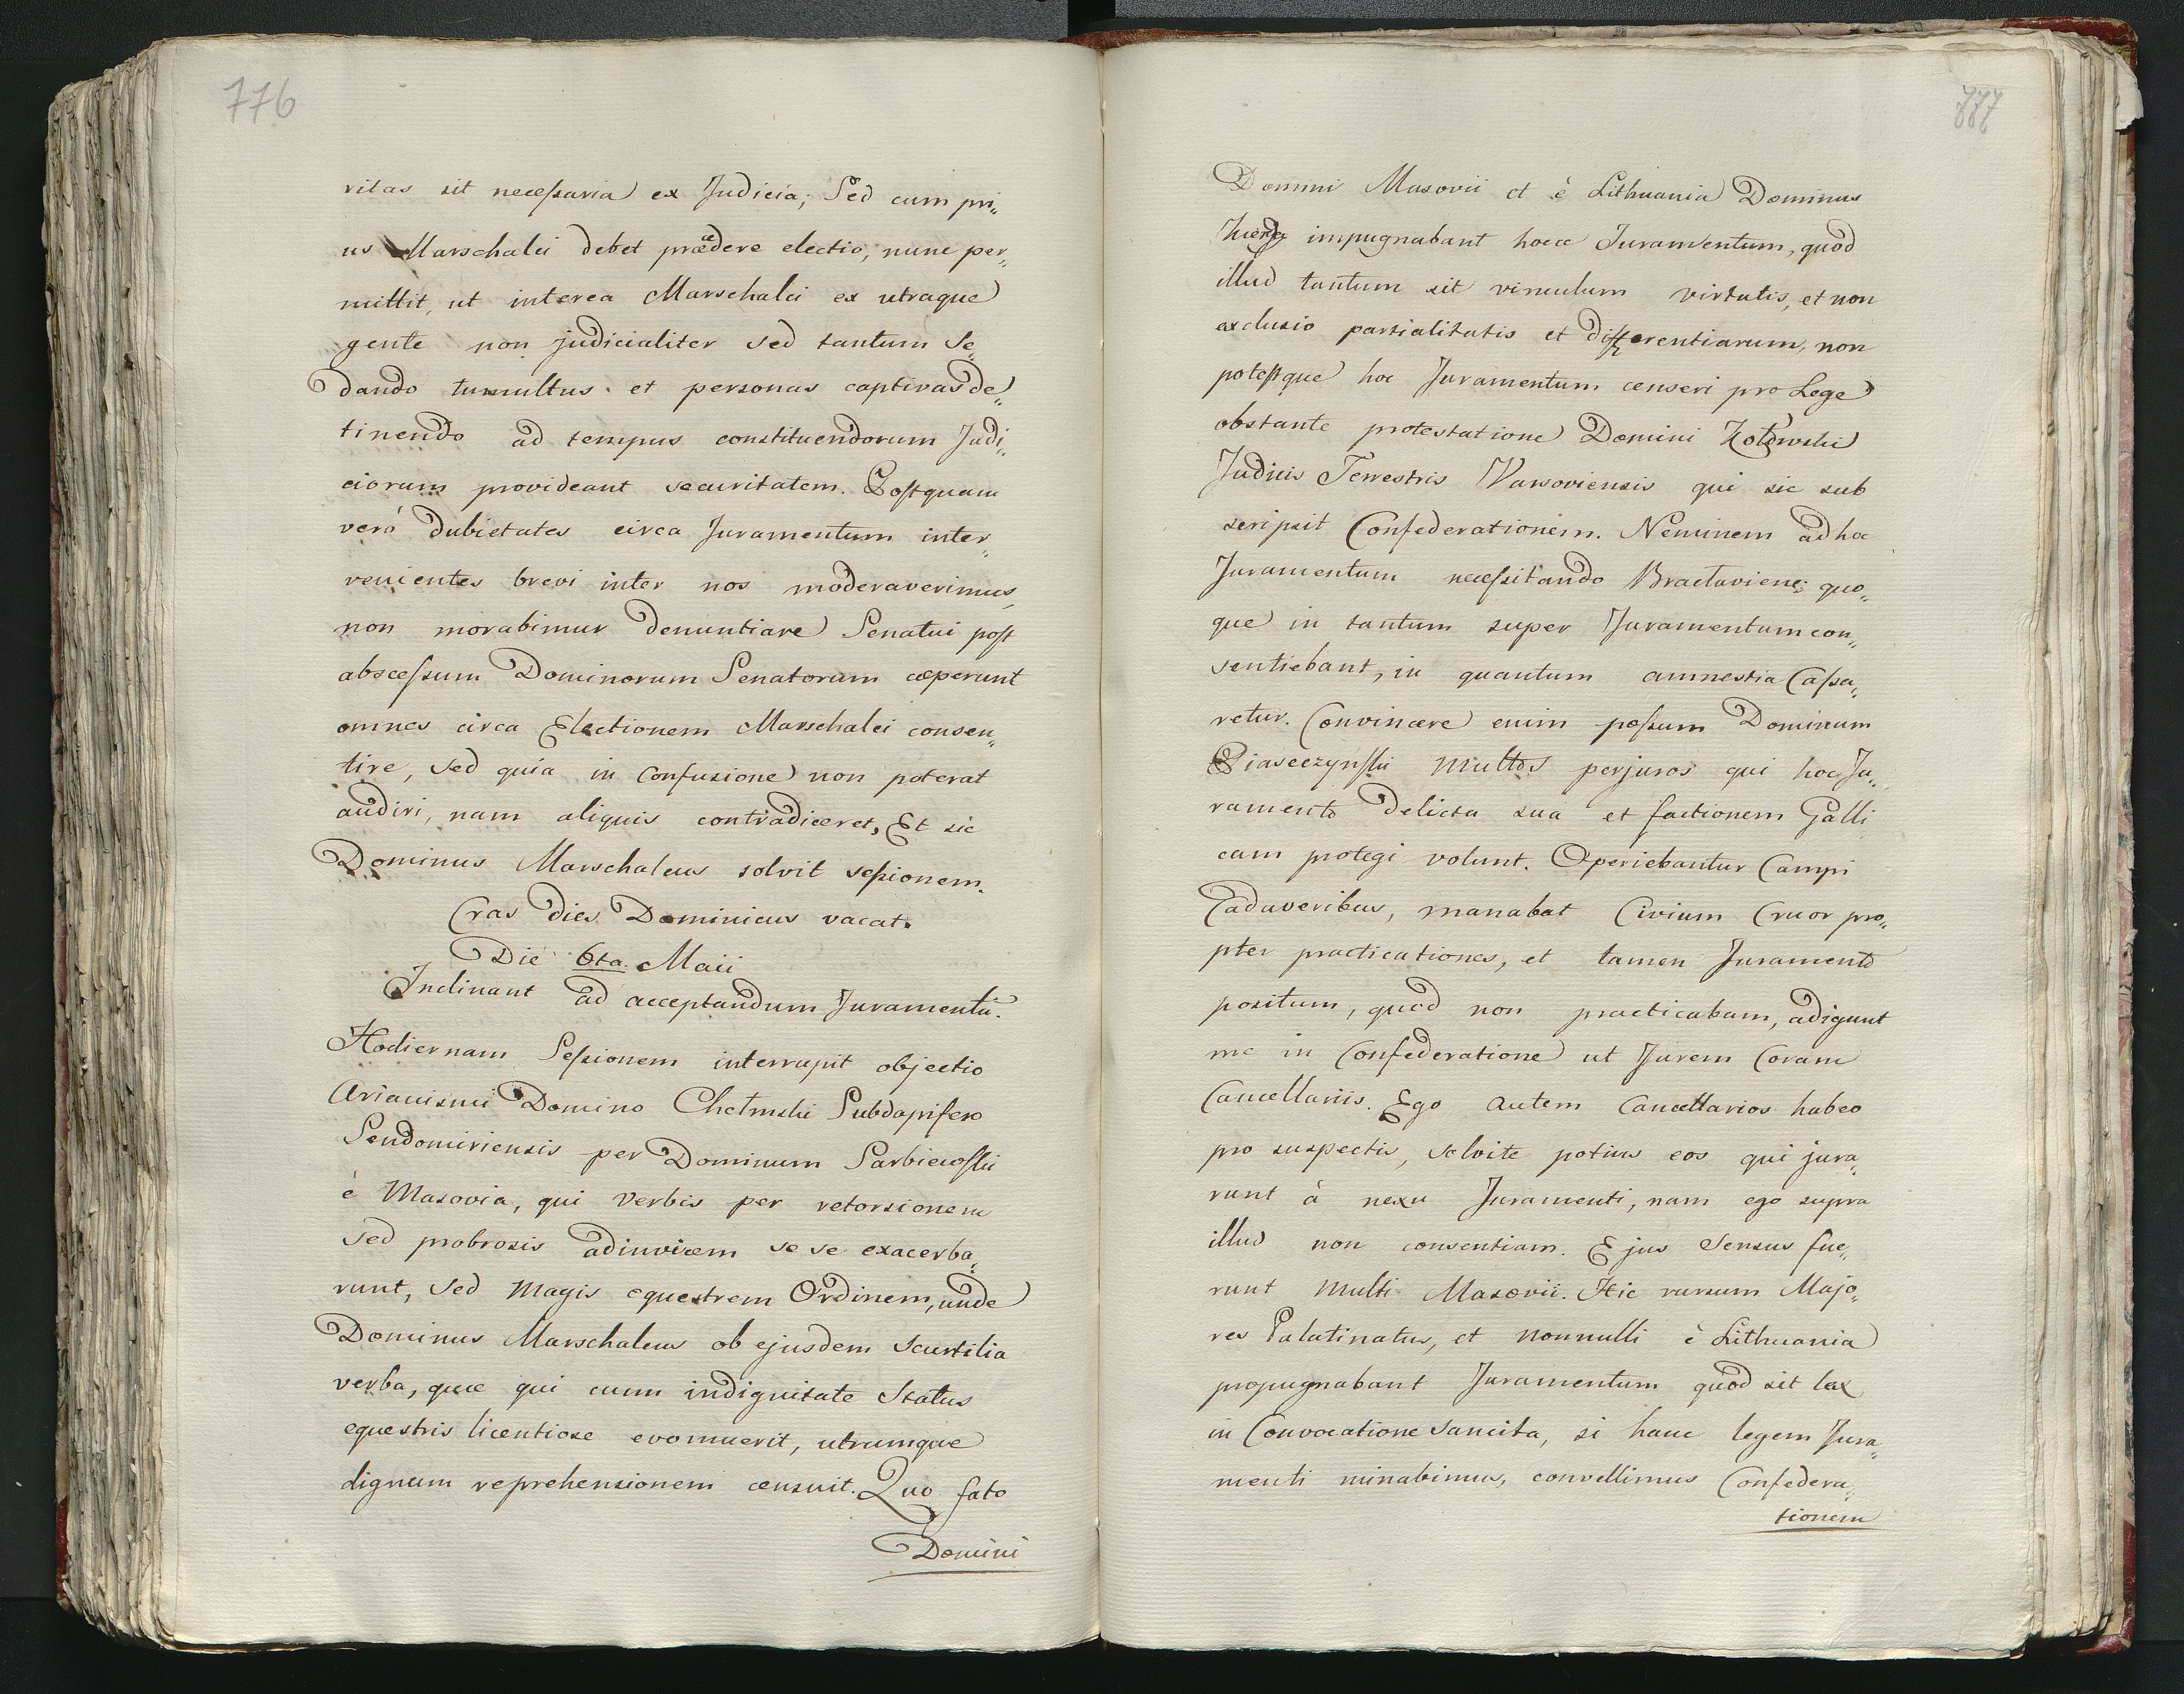 776
ritas sit necessaria ex Judicia; Sed cum pri„
us Marschalci debet præcedere electio, nunc per„
mittit, ut interea Marschalci ex utraque
gente non judicialiter sed tantum Se„
dando tumultus et personas captivas de„
tinendo ad tempus constituendorum Judi„
ciorum provideant securitatem. Postquam
verò dubietates circa Juramentum inter„
venientes brevi inter nos moderaverimus,
non morabimur denuntiare Senatui post
abscessum Dominorum Senatorum cæperunt
omnes circa Electionem Marschalci consen„
tire, sed quia in Confusione non poterat
audiri, nam aliquis contradiceret, Et sic
Dominus Marschalcus solvit sessionem.
Cras dies Dominicus vacat.
Die 6ta. Maii
Inclinant ad acceptandum Juramentū.
Hodiernam Sessionem interrupit objectio
Arianismi Domino Chełmski Subdapifero
Sendomiriensis per Dominum Sarbiewski
è Masovia, qui verbis per retorsionem
sed probrosis adinvicem se se exacerba„
runt, sed magis equestrem Ordinem, unde
Dominus Marschalcus ob ejusdem scurrilia
verba, quæ qui cum indignitate Status
equestris licentiose evomuerit, utrumque
dignum reprehensionem censuit. Quo fato
Domini
777
Domini Masovii et è Lithuania Dominus
impugnabant hocce Juramentum, quod
illud tantum sit vinculum virtutis, et non
exclusio partialitatis et differentiarum, non
potestque hoc Juramentum censeri pro Lege
obstante protestatione Domini Zołtowski
Judicis Terrestris Varsoviensis qui sic sub
scripsit Confederationem. Neminem ad hoc
Juramentum necessitando Braclaviens: quo„
que in tantum super Juramentum con„
sentiebant, in quantum amnestia Cassa„
retur. Convincere enim possum Dominum
Piasecezynski multos perjuros qui hoc Ju„
ramento delicta sua et factionem Galli
cam protegi volunt. Operiebantur Campi
Cadaveribus, manabat Civium Cruor pro„
pter practicationes, et tamen Juramento
positum, quod non practicabam, adigunt
me in Confederatione ut Jurem Coram
Cancellariis. Ego autem Cancellarios habeo
pro suspectis, solvite potius eos qui jura„
runt à nexu Juramenti, nam ego supra
illud non consentiam. Ejus Sensus fue„
runt multi Masovii. Hic rursum Majo„
res Palatinatus, et nonnulli è Lithuania
propugnabant Juramentum quod sit lex
in Convocatione sancita, si hanc legem Jura„
menti minabimus, convellimus Confedera„
tionem